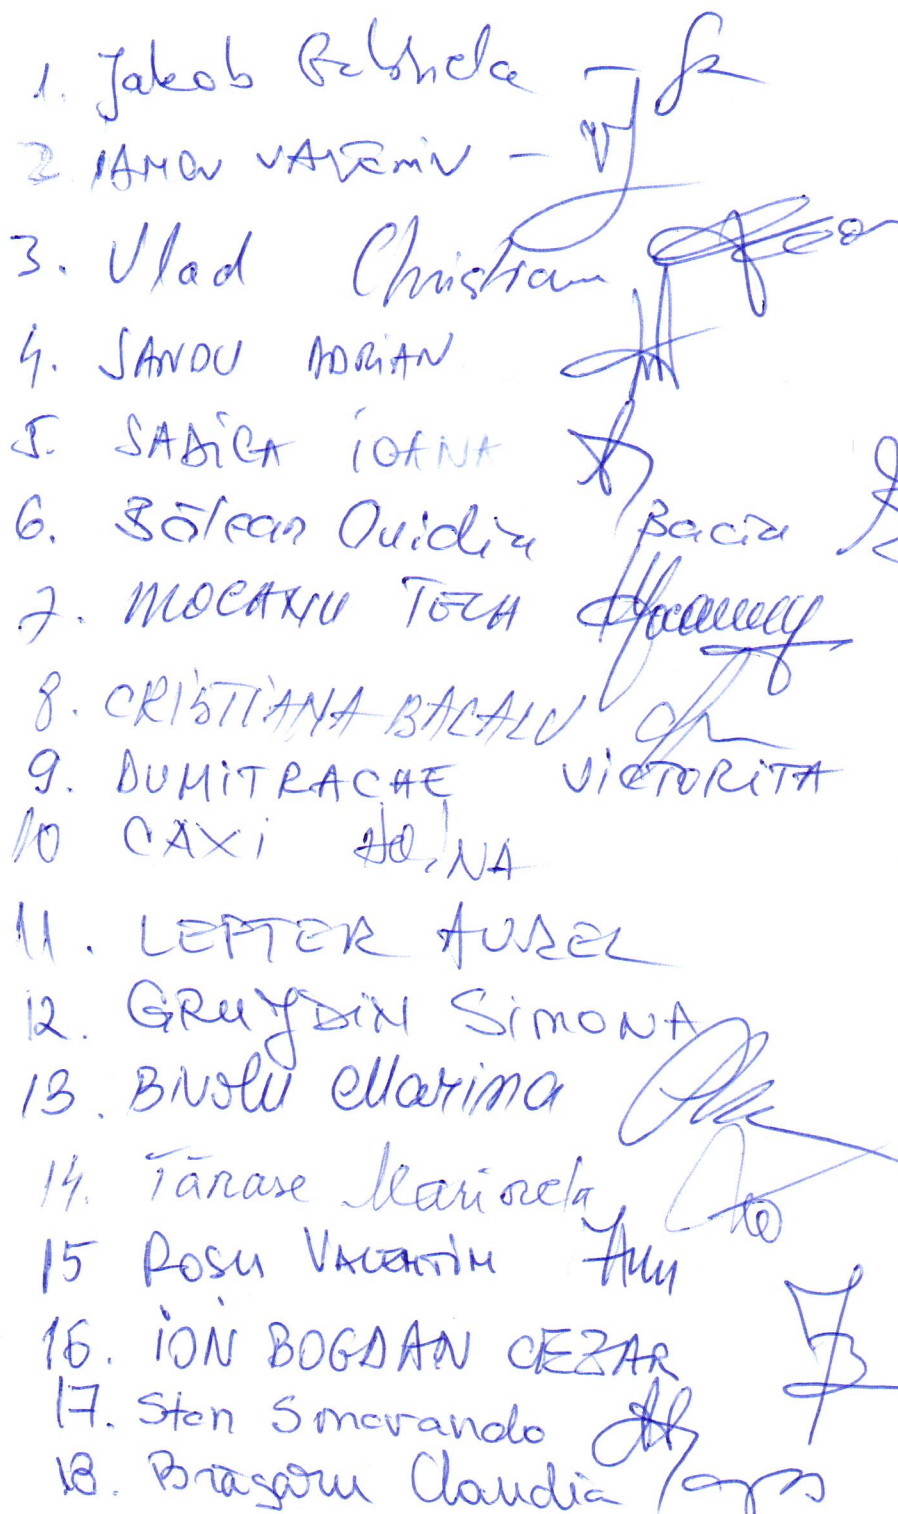 1. Jakob Gabriela -
2 IAMCU VALENTIN -
3. Vlad Christian
4. SANDU ADRIAN
5. SADICA IOANA
6. Bălean Ovidiu Baciu
7. MOCANU
8. CRISTIANA BACALU
9. DUMITRACHE VICTORITA
10 CAXI
11. LEFTER AUREL
12. SIMONA
13. Marina
14. Tănase Marioreta
15 Rosu VALENTIN
16. ION BOGDAN CEZAR
17. Stan Smaranda
18. Claudia